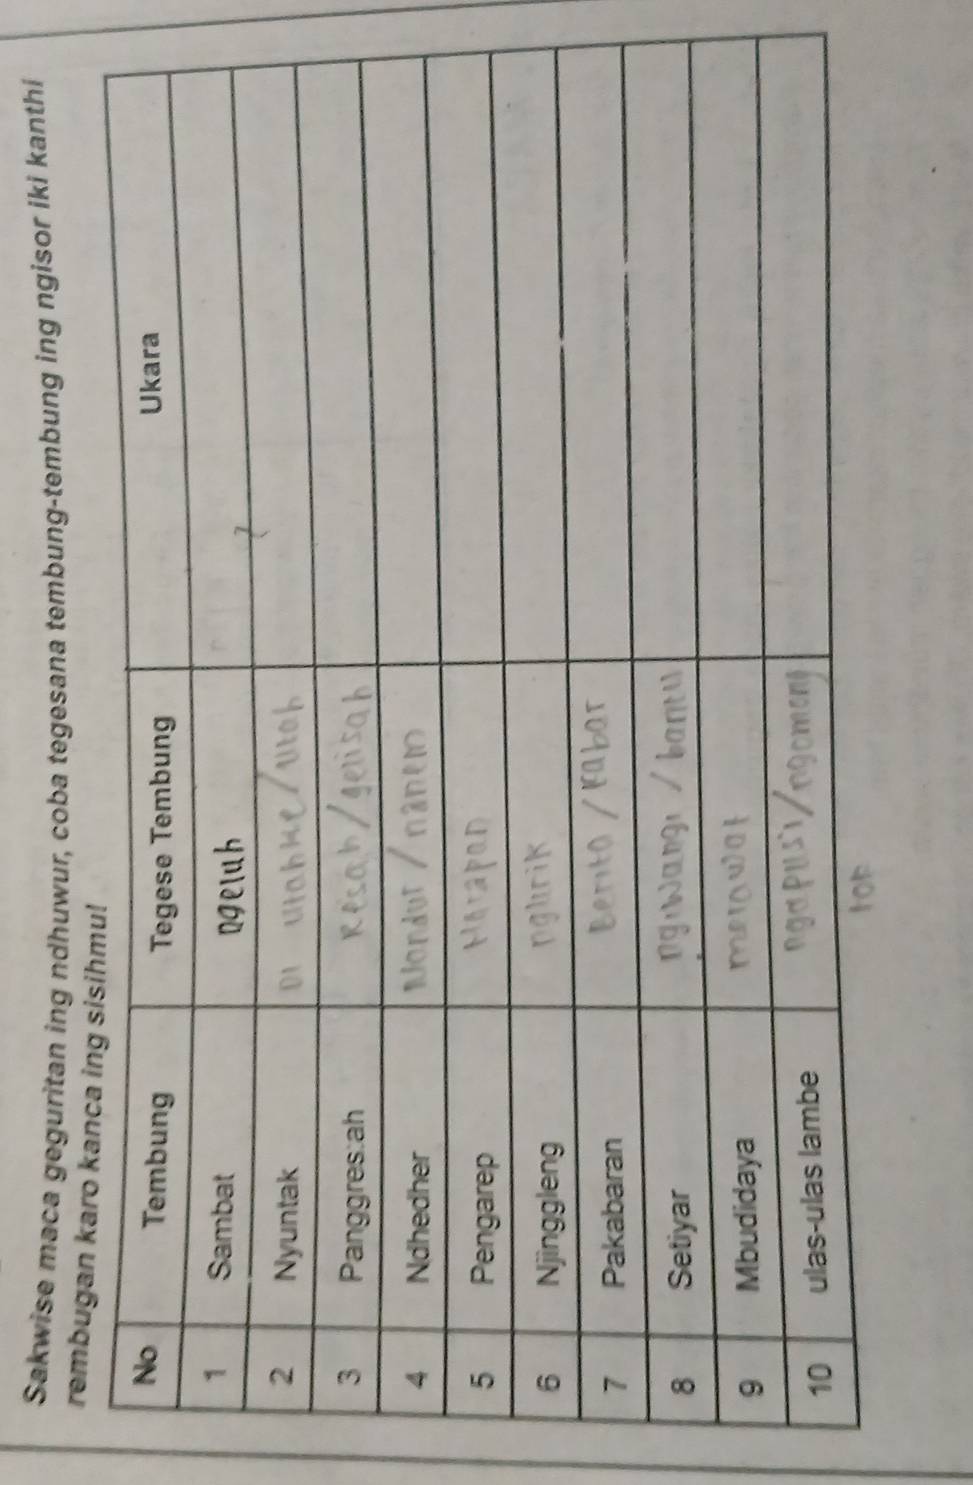 Sakwise maca geguritan ing ndhuwur, coba tegesana tembung-tembung ing ngisor iki kanthi
rembugan karo kanca ing sisihmu!
No Tembung Tegese Tembung Ukara
1 Sambat ngeluh
2 Nyuntak Di utahke/Utah
3 Panggres:ah Resah/gelisah
4 Ndhedher Nandur/nanem
5 Pengarep Harapan
6 Njinggleng nglirik
7 Pakabaran Berita/Kabar
8 Setiyar ngiwangi/bantu
9 Mbudidaya merawat
10 ulas-ulas lambe ngapusi/ngomong